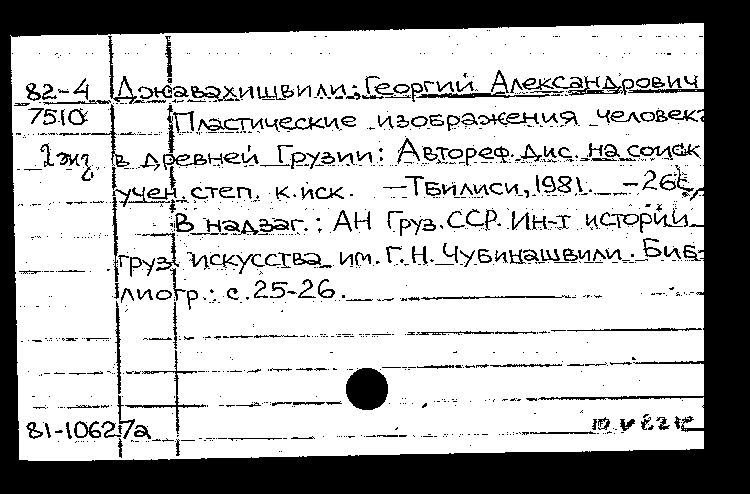 82-4 Джавахишвили, Георгий Александрович
7510 Пластические изображения человек
2 экз в древней Грузии: Автореф. дис. на соиск
учен. степ. к. иск. — Тбилиси, 1981. — 26с.
В надзаг.: АН Груз.ССР. Ин-т истории
груз. искусства им. Г.Н. Чубинашвили. Биб-
лиогр.: с. 25-26.
81-10627а